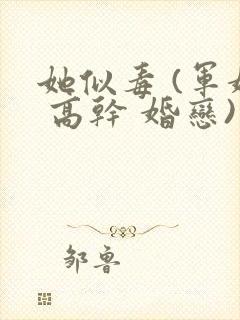 她似毒 (軍婚
高幹 婚戀)
邹鲁